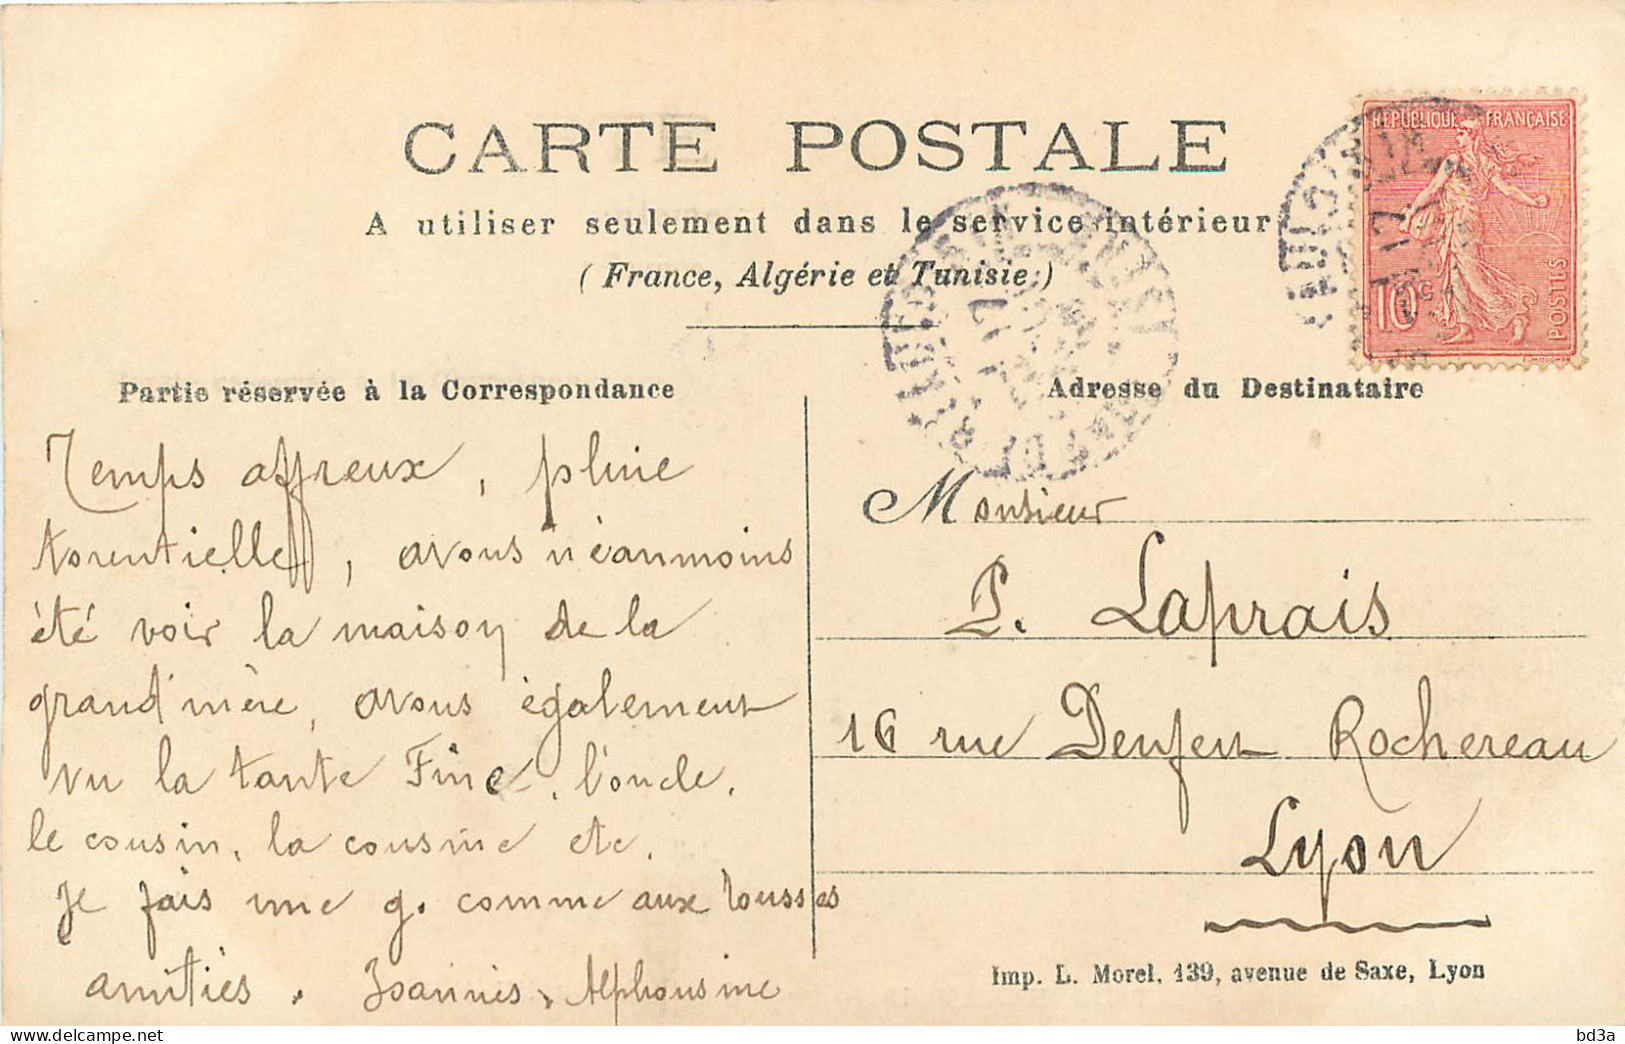 CARTE POSTALE
A utiliser seulement dans le service intérieur
(France, Algérie et Tunisie)
RÉPUBLIQUE FRANÇAISE
10c
POSTES
Partie réservée à la Correspondance
Temps affreux, pluie
torentielle, avons néanmoins
été voir la maison de la
grand'mère, avons également
vu la tante Fine, l'oncle,
le cousin, la cousine etc.
Je fais une g. comme aux
amitiés. Joannès, Alphonsine
Adresse du Destinataire
Monsieur
P. Laprais
16 rue Denfert Rochereau
Lyon
Imp. L. Morel, 139, avenue de Saxe, Lyon
www.delcampe.net
bd3a